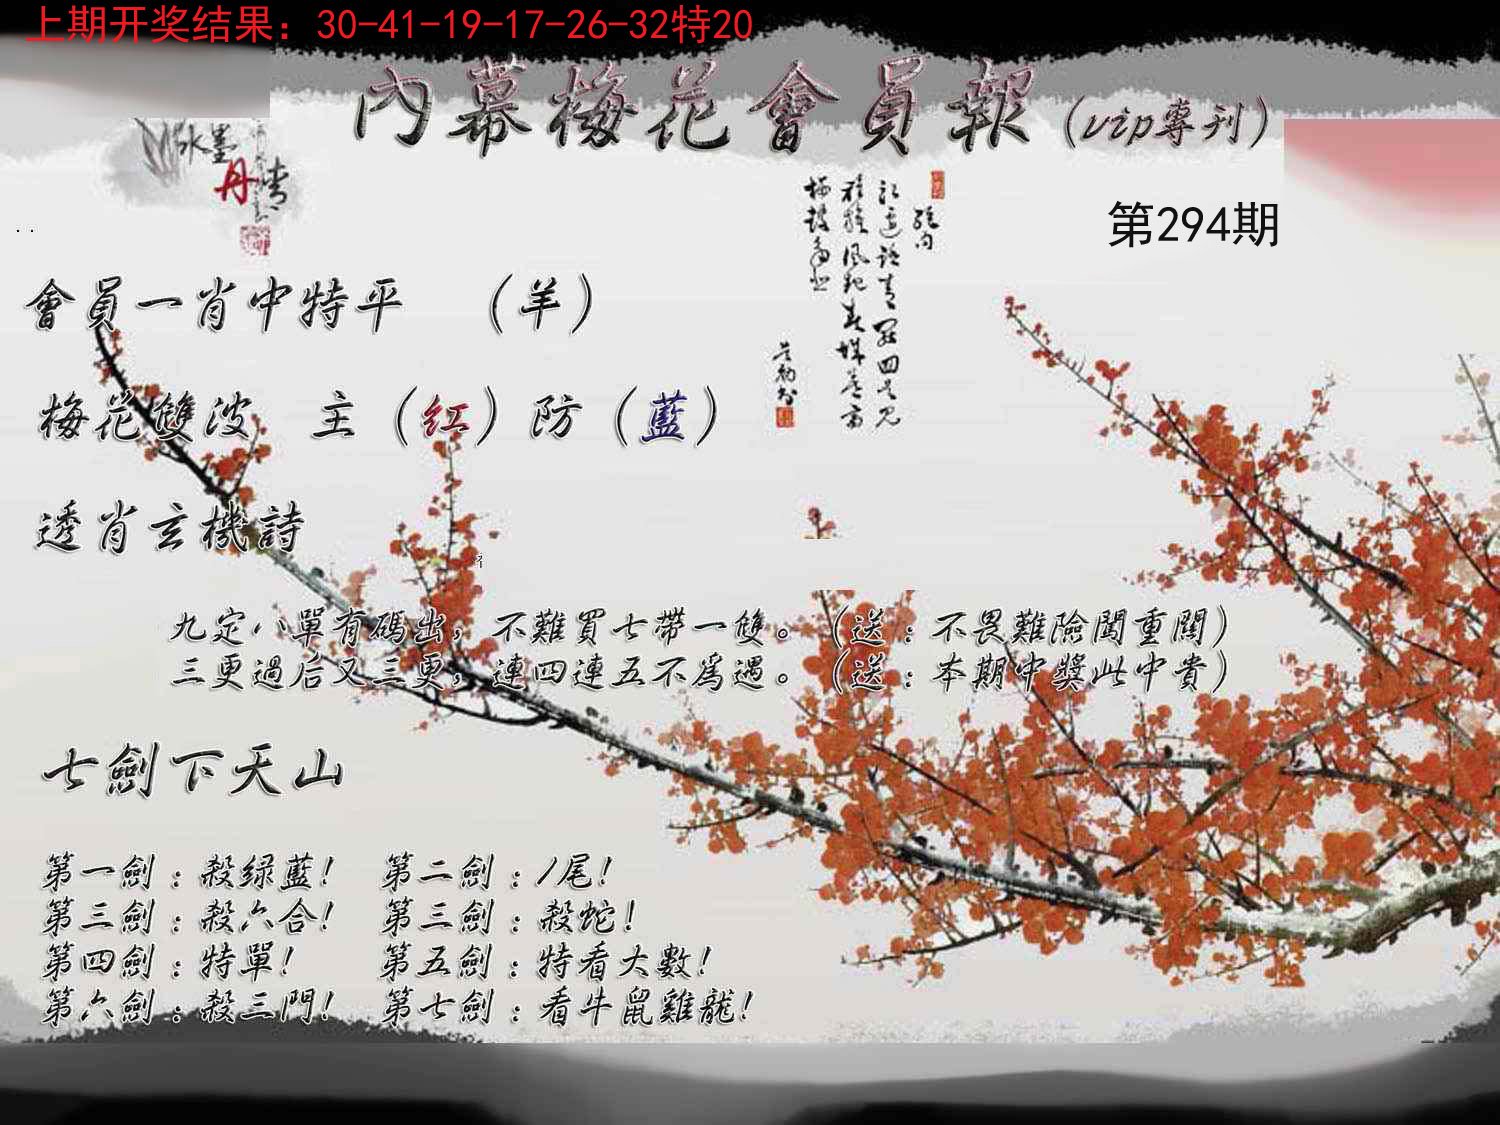 上期开奖结果：30-41-19-17-26-32特20
內幕梅花會員報(vip專刊)
水墨
丹青
第294期
會員一肖中特平 （羊）
梅花雙波 主（红）防（藍）
透肖玄機詩
九定八單有碼出，不難買七帶一雙。（送：不畏難險闖重關）
三更過后又三更，連四連五不爲過。（送：本期中獎此中貴）
七劍下天山
第一劍：殺绿藍！ 第二劍：/尾！
第三劍：殺六合！ 第三劍：殺蛇！
第四劍：特單！ 第五劍：特看大數！
第六劍：殺三門！ 第七劍：看牛鼠雞龍！